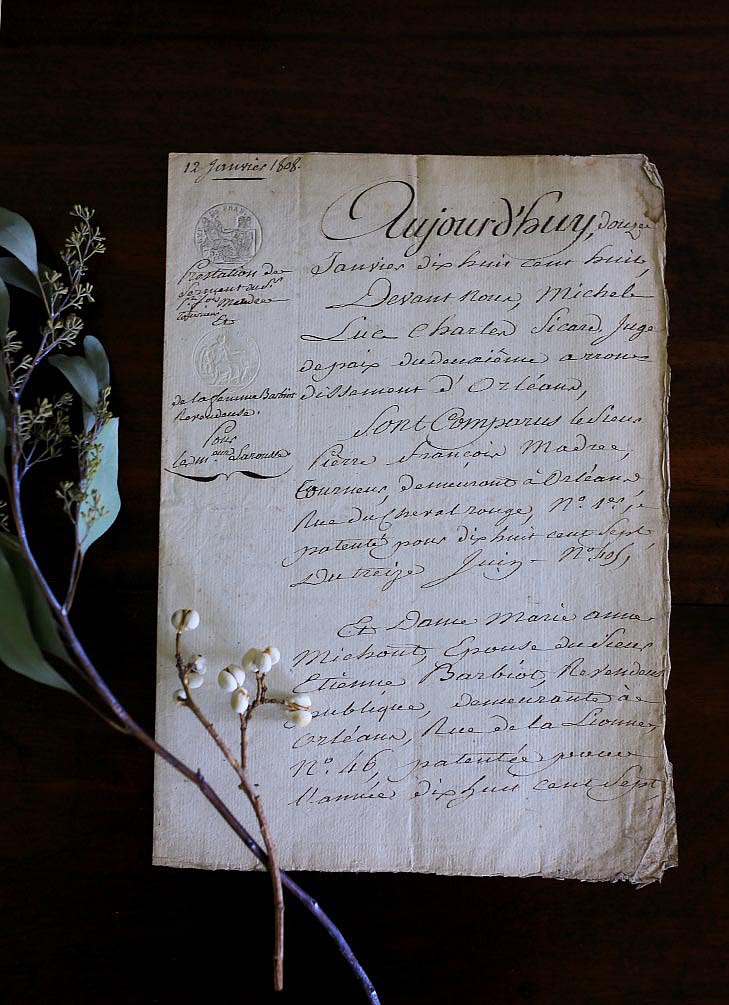 12 Janvier 1808.
Prestation de
serment du Sr.
Madree
tourneur
Et
de la femme Barbiot
Revendeuse.
Pour
Larousse
Aujourd'huy, douze
Janvier dix huit cent huit,
Devant nous, Michel
Luc Charles Sicard, Juge
de paix du deuxième arron=
dissement d'Orléans,
Sont Comparus le Sieur
Pierre François Madree,
tourneur, demeurant à Orléans
Rue du Cheval rouge, No. 1er,
patenté pour dix huit cent Sept
du treize Juin No. 405,
Et Dame Marie anne
Michout, Epouse du Sieur
Etienne Barbiot, Revendeuse
publique, demeurante à
Orléans, Rue de la Lionne,
No. 46, patentée pour
l'année dix huit cent Sept